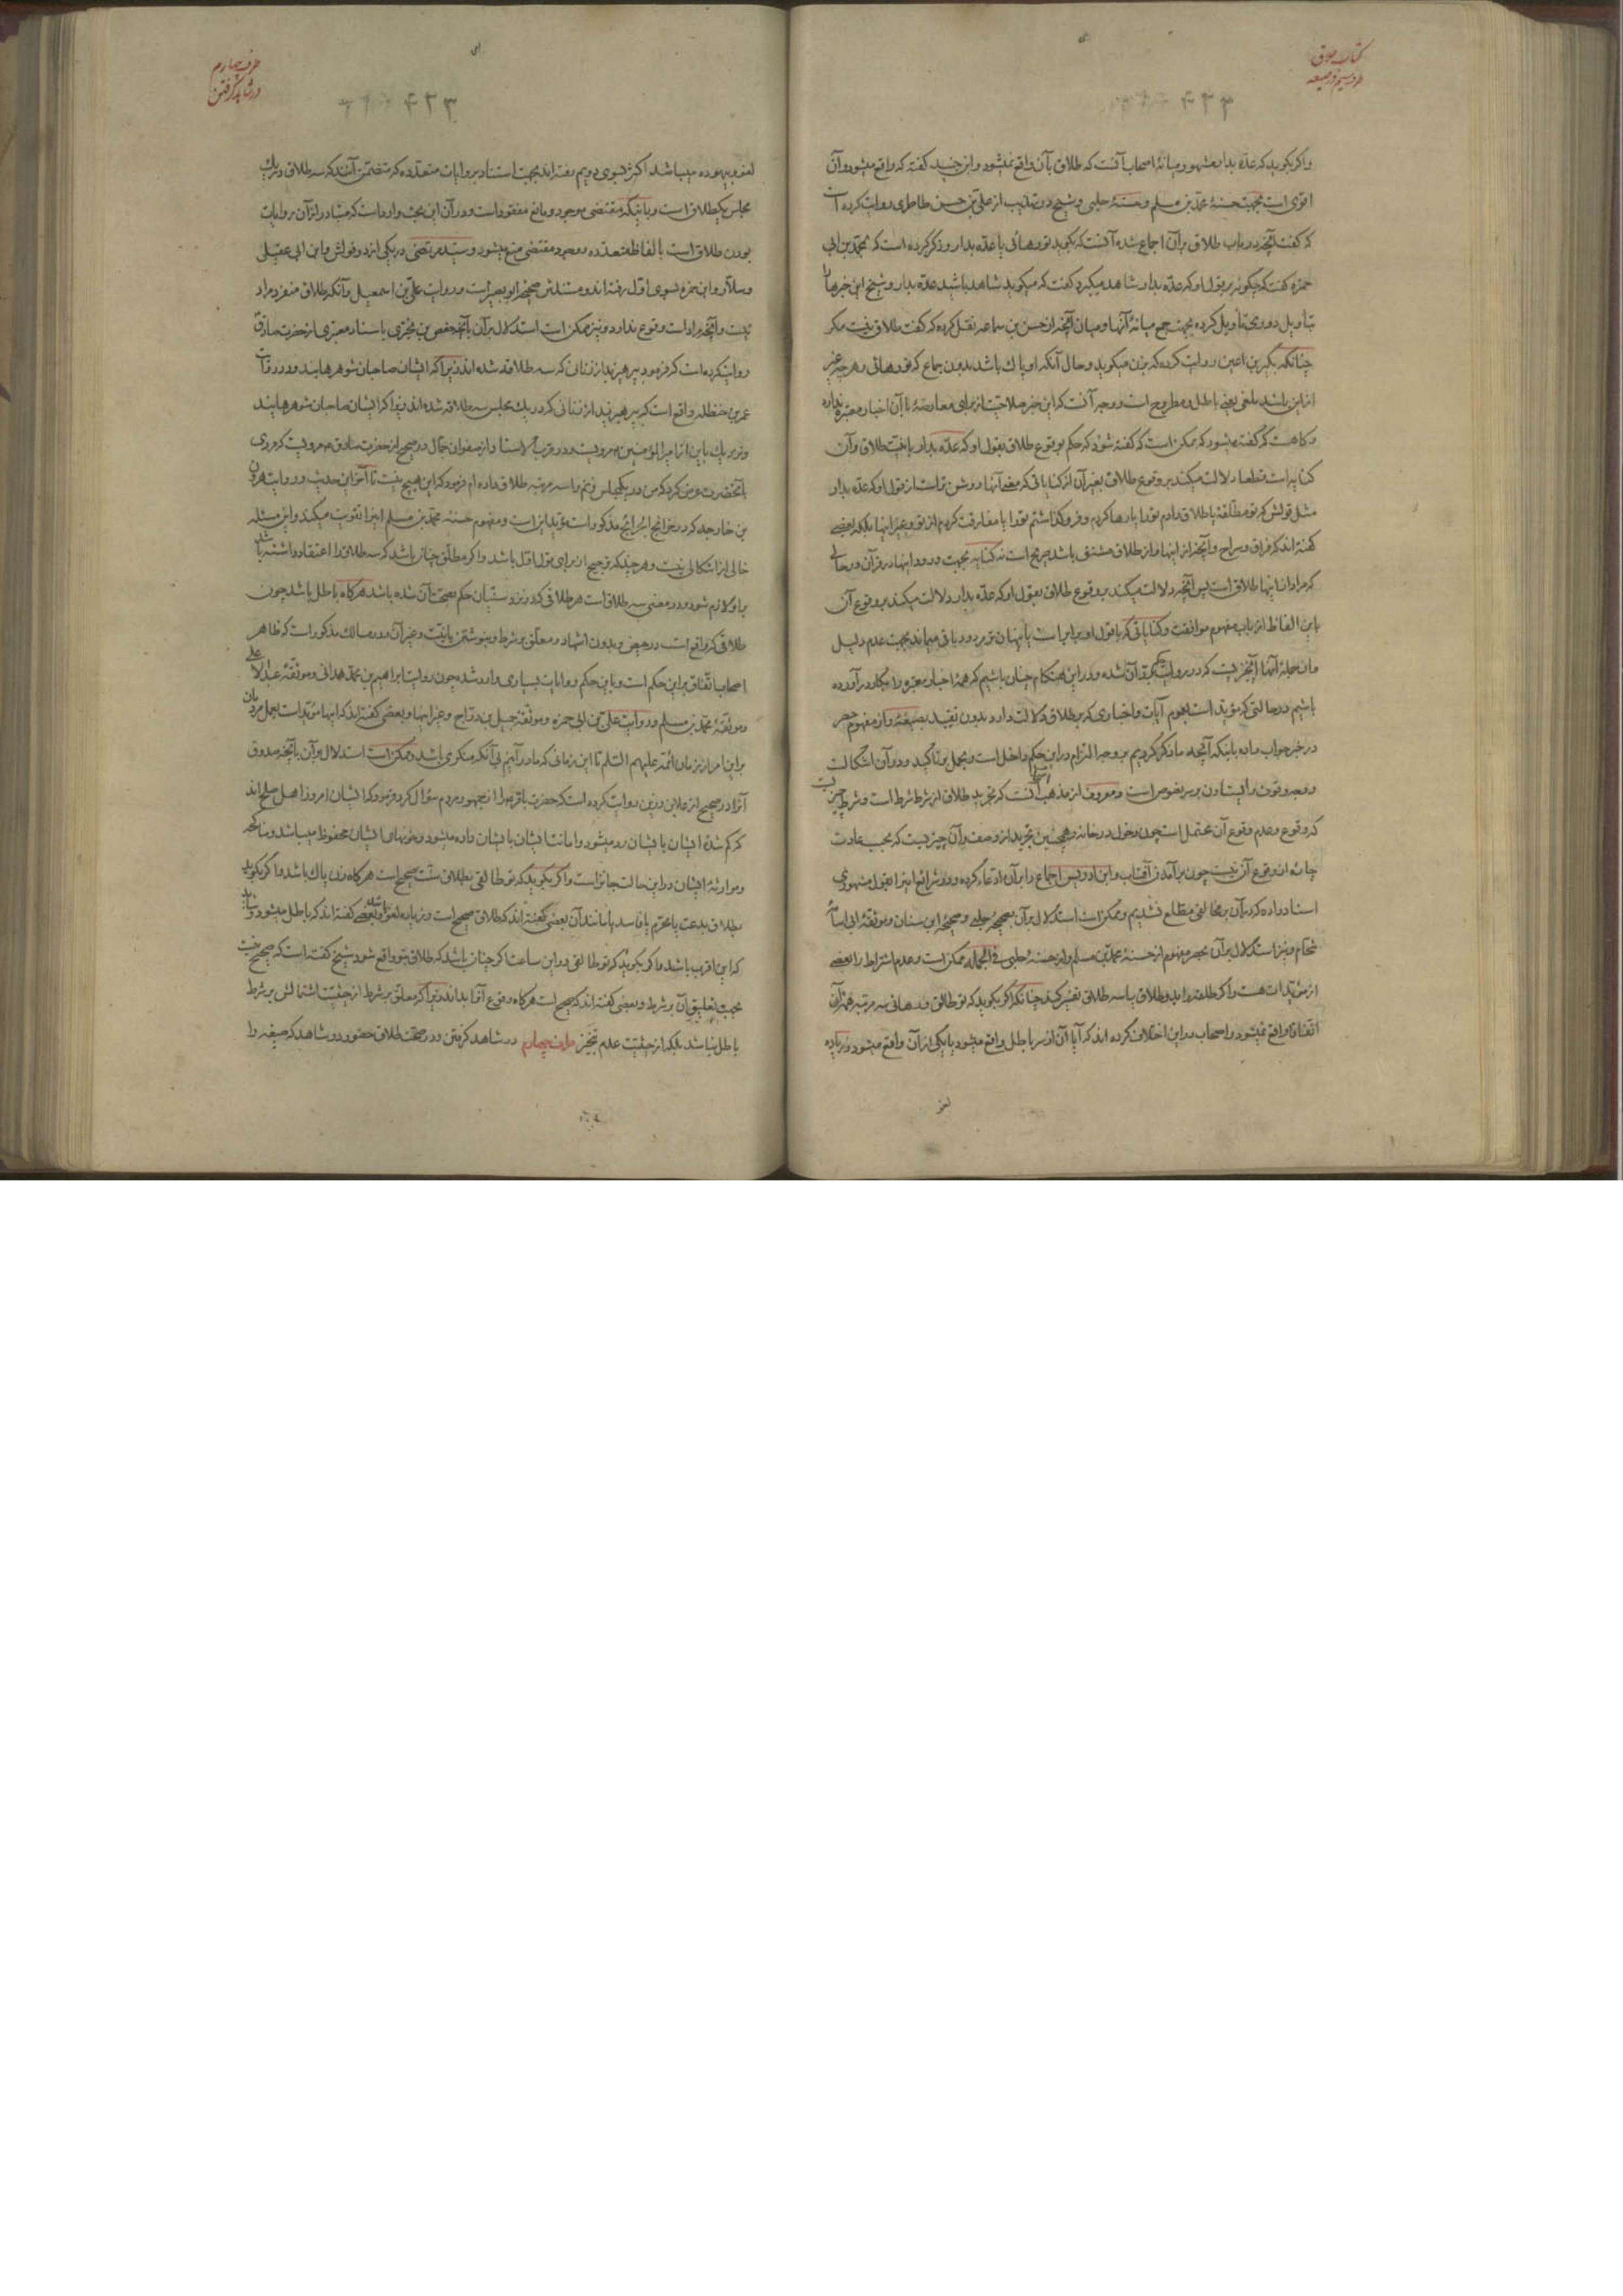 کتاب طلاق
طرف سیم در صیغه
۴۲۳
واگر بگوید که عدّه بدار مشهور میانهٔ اصحاب آنست که طلاق بآن واقع نمیشود وابن جنید کفته که واقع میشود وآن
اقوی است بجهت حسنهٔ محمّد بن مسلم وحسنهٔ حلبی وشیخ در تهذیب از علی بن حسن طاطری روایت کرده است
که کفت آنچه در باب طلاق بر آن اجماع شده آنست که بگوید تو رهائی یا عدّه بدار وذکر کرده است که محمّد بن ابی
حمزه کفت که چکونه بر قول او که عدّه بدار شاهد میکیرد کفت که میکوید شاهد باشید عدّه بدار وشیخ این خبرها را
بتأویل دوری تأویل کرده بجهت جمع میانهٔ آنها ومیان آنچه از حسن بن سماعه نقل کرده که کفت طلاق نیست مکر
چنانکه بکیر بن اعین روایت کرده که بزن میکوید وحال آنکه او پاک باشد بدون جماع که تو رهائی وهر چه غیر
از این باشد ملغی یعنی باطل ومطروح است ووجه آنست که این خبر صلاحیت از برای معارضهٔ با آن اخبار معتبره ندارد
وکاهست که کفته میشود که ممکن است که کفته شود که حکم بوقوع طلاق بقول او که عدّه بدار با نیّت طلاق وآن
کنایه است قطعا دلالت میکند بر وقوع طلاق بغیر آن از کنایاتی که معنی آنها روشن تر است از قول او که عدّه بدار
مثل قولش که تو مطلّقهٔ یا طلاق دادم تو را یا رها کردم وفرو کذاشتم تو را یا مفارقت کردم از تو وغیر اینها بلکه بعضی
کفته اند که فراق وسراح وآنچه از اینها واز طلاق مشتق باشد صریح است نه کنایه بجهت ورود اینها در قرآن در حالتی
که مراد از اینها طلاق است پس آنچه دلالت میکند بر وقوع طلاق بقول او که عدّه بدار دلالت میکند بر وقوع آن
باین الفاظ از باب مفهوم موافقت وکنایاتی که با قول او برابر است یا پنهان تر بر دود باقی میماند بجهت عدم دلیل
باشیم در حالتی که مؤید است بعموم آیات واخباری که بر طلاق دلالت دارد بدون تقیید بصیغهٔ واز مفهوم حصر
در خبر جواب داده باینکه آنچه ما ذکر کردیم بر وجه التزام در این حکم داخل است وبحمل بر تأکید ودر آن اشکالست
که وقوع وعدم وقوع آن محتمل است چون دخول در خانه وهمچنین تجرید از وصف وآن چیزیست که بحسب عادت
چاره از وقوع آن نیست چون برآمدن آفتاب وابن ادریس اجماع را بر آن ادّعا کرده ودر شرایع اینرا بقول مشهوری
اسناد داده که در آن بر مخالفی مطّلع نشدیم وممکن است استدلال بر آن بصحیحهٔ حلبی وصحیحهٔ ابن سنان وموثّقهٔ ابی اسامهٔ
شحّام ونیز استدلال بر آن بحصر مفهوم از حسنهٔ محمّد بن مسلم واز حسنهٔ حلبی فی الجمله ممکن است وعدم اشتراط را بعضی
اتّفاقا واقع نمیشود واصحاب در این اختلاف کرده اند که آیا آن از سر باطل واقع میشود یا یکی از آن واقع میشود وزیاده
لغو
طرف چهارم
در شاهد گرفتن
۴۲۳
لغو وبیهوده میباشد اکثر بسوی دویم رفته اند بجهت استناد بروایات متعدّده که متضمّن آنند که سه طلاق در یک
مجلس یکطلاق است وباینکه مقتضی موجود ومانع مفقود است ودر آن این بحث وارد است که متبادر از آن روایات
بودن طلاق است بالفاظ متعدّده ووجود مقتضی منع میشود وسید مرتضی در یکی از دو قولش وابن ابی عقیل
وسلّار وابن حمزه بسوی اوّل رفته اند ومستندش صحیحهٔ ابو بصیر است وروایت علی بن اسمعیل وآنکه طلاق منفرد مراد
نیست وآنچه مراد است وقوع ندارد ونیز ممکن است استدلال بر آن بآنچه حفص بن بختری باسناد معتبری از حضرت صادق
روایت کرده است که فرمود بپرهیزید از زنانی که سه طلاقه شده اند زیرا که ایشان صاحبان شوهر هایند ودر روایت
عمر بن حنظله واقع است که بپرهیزید از زنانی که در یک مجلس سه طلاقه شده اند زیرا که ایشان صاحبان شوهر هایند
بآنحضرت عرض کرد که من در یکمجلس زنم را سه مرتبه طلاق داده ام فرمود که این هیچ نیست تا آخر این حدیث وروایت هرون
بن خارجه که در خرائج الجرائح مذکور است مؤید این است ومفهوم حسنهٔ محمّد بن مسلم اینرا تقویت میکند واین مسئله
خالی از اشکالی نیست وهر چند که ترجیح از برای قول اوّل باشد واکر مطلّق چنان باشد که سه طلاق را اعتقاد داشته باشد
بر او لازم شود ودر معنی سه طلاق است هر طلاقی که در نزد سنّیان حکم بصحت آن شده باشد هرکاه باطل باشد چون
طلاقی که واقع است در حیض وبدون اشهاد ومعلّق بر شرط وبنوشتن با نیّت وغیر آن ودر مسالک مذکور است که ظاهر
اصحاب اتّفاق بر این حکم است وباین حکم روایات بسیاری وارد شده چون روایت ابراهیم بن محمّد همدانی وموثّقهٔ عبد الاعلی
وموثّقهٔ محمّد بن مسلم وروایت علی بن ابی حمزه وموثّقهٔ جمیل بن درّاج وغیر اینها وبعضی کفته اند که اینها مؤید است بعمل مردمان
بر این امر از زمان ائمّه علیهم السّلام تا این زمانی که ما در آنیم بی آنکه منکری باشد وممکن است استدلال بر آن بآنچه صدوق
آنرا در صحیح از علا بن رزین روایت کرده است که حضرت باقر را از جمهور مردم سؤال کرد فرمود که ایشان امروز اهل صلح اند
که کم شدهٔ ایشان بایشان رد میشود وامانت ایشان بایشان داده میشود وخونهای ایشان محفوظ میباشد ومناکحه
وموارثهٔ ایشان در این حالت جایز است واکر بگوید که تو طالقی بطلاق سنّت صحیح است هرکاه زن پاک باشد واکر بگوید
که این اقرب باشد واکر بگوید که تو طالقی در این ساعت اکر چنان باشد که طلاق بتو واقع شود شیخ کفته است که صحیح نیست
بجهت تعلیق آن بر شرط وبعضی کفته اند که صحیح است هرکاه وقوع آنرا بداند زیرا که معلّق بر شرط از حیثیت اشتمالش بر شرط
باطل نباشد بلکه از حیثیت عدم تنجیز طرف چهارم در شاهد کرفتن ودر صحّت طلاق حضور دو شاهد که صیغه را